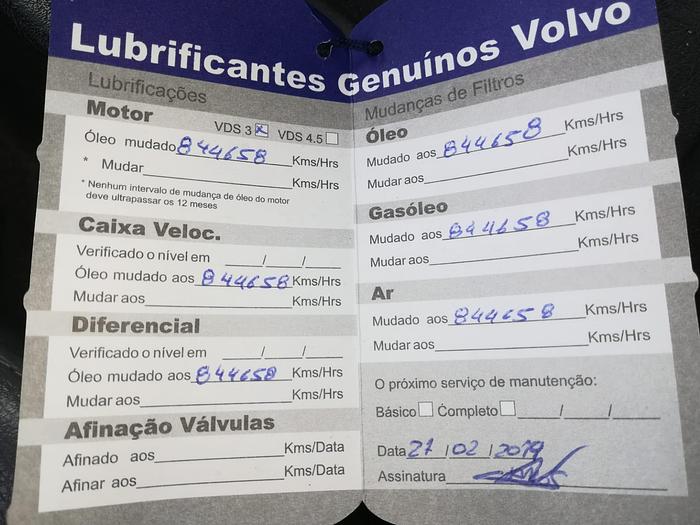 Lubrificantes Genuínos Volvo
Lubrificações
Motor
VDS 3 VDS 4.5
Óleo mudado 844658 Kms/Hrs
* Mudar Kms/Hrs
* Nenhum intervalo de mudança de óleo do motor
deve ultrapassar os 12 meses
Caixa Veloc.
Verificado o nível em / /
Óleo mudado aos 844658 Kms/Hrs
Mudar aos Kms/Hrs
Diferencial
Verificado o nível em / /
Óleo mudado aos 844658 Kms/Hrs
Mudar aos Kms/Hrs
Afinação Válvulas
Afinado aos Kms/Data
Afinar aos Kms/Data
Mudanças de Filtros
Óleo
Mudado aos 844658 Kms/Hrs
Mudar aos Kms/Hrs
Gasóleo
Mudado aos 844658 Kms/Hrs
Mudar aos Kms/Hrs
Ar
Mudado aos 844658 Kms/Hrs
Mudar aos Kms/Hrs
O próximo serviço de manutenção:
Básico Completo / /
Data 27 / 02 / 2019
Assinatura